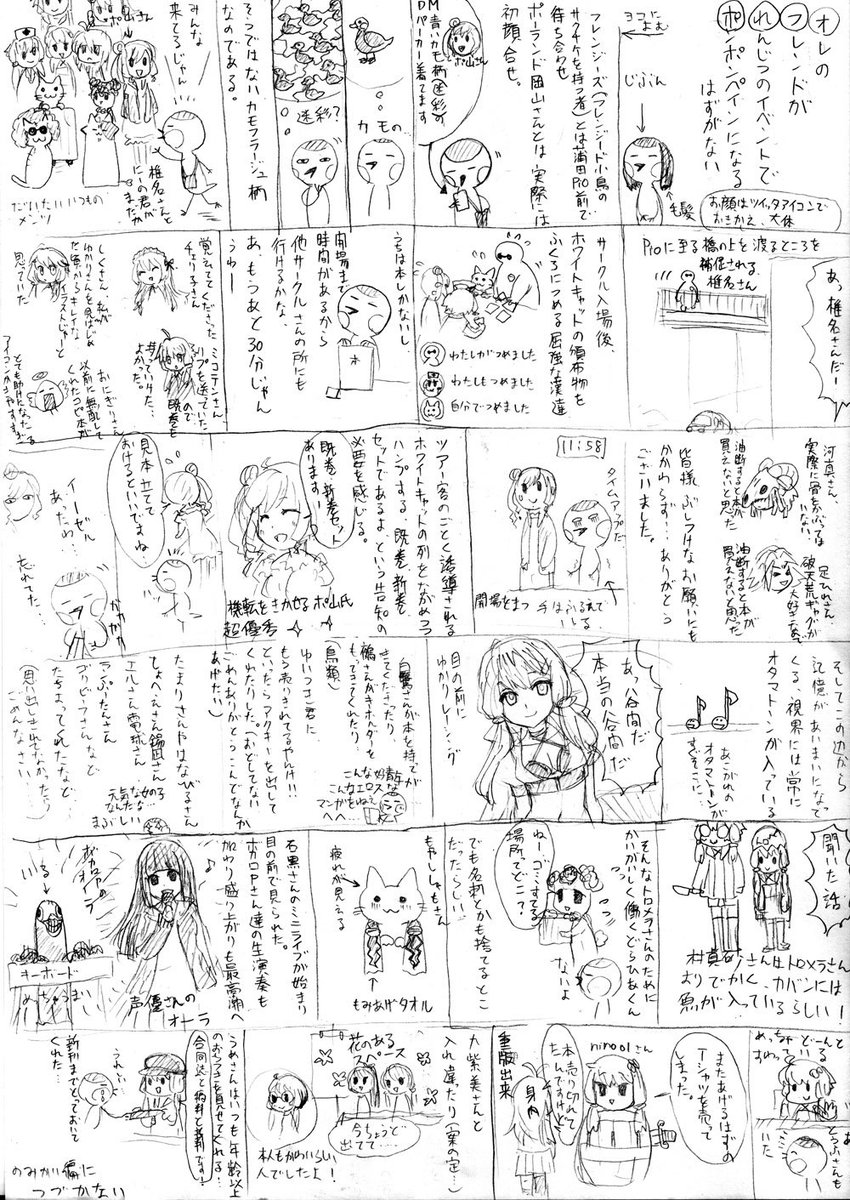 オレの
フレンドが
れんじつのイベントで
ポンポンペインになる
はずがない
ヨコによむ
じぶん
毛髪
お顔はツイッタアイコンで
おきかえ、大体
フレンジーズ(フレンジード小鳥の
サクチケを持つ者)とは蒲田Pio前で
待ち合わせ
ポーランド岡山さんとは実際には
初顔合せ。
ポ山さん
DM
青いカモ柄迷彩の
パーカー着てます
カモの…
迷彩?
そうではない カモフラージュ柄
なのである。
ポ山さん
みんな
来てるじゃん
椎名さんと
にしの君が
まだか
だいたいいつもの
メンツ
あっ椎名さんだー
Pioに至る橋の上を渡るところを
補促される
椎名さん
サークル入場後、
ホワイトキャットの頒布物を
ふくろにつめる屈強な漢達
わたしがつめました
わたしもつめました
自分でつめました
うちは本しかないし、
開場まで
時間があるから
他サークルさんの所にも
行けるかな、
あ、もうあと30分じゃん
うわー
本
覚えててくださった
チェリ子さん
ミコテンさん
リプを送っていたので
既巻も
持っていけた…
よかった。
しくさん 私が
ゆかりさんを見はじめ
た頃からキレイな
イラストじゃーと
見ていた
おにぎりさん
以前に無配して
くれたコピ本が
とても助けになったる
アイコンかきやすすぎ
河真さん、
実際に骨をかぶっては
いない
油断すると本が
買えないと思った
足ひれさん
破天荒ギャグが
大好きなので
油断すると本が
買えないと思った
皆様、ぶしつけなお願いにも
かかわらず…ありがとう
ございました。
11:58
タイムアップだ
開場をまつ 手はふるえて
いる
ツアー客のごとく誘導される
ホワイトキャットの列をながめつつ
ハンプする 既巻、新巻
セットであるよ、という告知の
必要を感じる。
既巻 新巻セット
あります!
機転をきかせるポ山氏
超優秀
見本立てて
おけるといいですね、
イーゼル
あったわ…
忘れてた…
ガガガ
そしてこの辺から
記憶があいまいになって
くる、視界には常に
オタマトーンが入っている
あこがれの
オタマトーンが
すぐそこに…
あっ谷間だ
本当の谷間だ
目の前に
ゆかりレーシング
白鷺さんが本を持て
きてくださったり、
鵺さんがキホルダーを
もってきてくれたり、
(鳥類)
こんな好青年が
こんなエロス
マンガをねェ?
へへ…
ゆいつきご君に
もう売りきれてるやんけ!!
といったらアクキーを出して
くれたりした。(おどしてない
ごめんありがとうこんでなんか
あげたい)
たまりさんやはなびるさん
しょへえさん錫因さん
エルさん電球さん
らっぷたんさん
ブリビーフさんなど
たちよってくれたなど
(思い出しきれてなかったら
ごめんなさい…)
元気な女の子
なんだな…
まぶしい
聞いた話
村真石さんはトロメラさん
おりでかく、カバンには
魚が入っているらしい!
そんなトロメラさんのために
かいがいしく働くどらひあくん
ねーゴミすてる
場所ってどこ?
ないよ
でも名刺とかも捨てるとこ
だったらしい。
もやししょもさん
疲れが見える
もみあげタオル
石黒さんのミニライブが始まり
目の前で見られた。
ボカロPさん達の生演奏も
加わり盛り上がりも最高潮へ
声優さんの
オーラ
ボカロPの
オーラ
いる
キーボード
めっちゃうまい
めっちゃどーんと
すわっている
またあげるはずの
Tシャツを売って
しまった。
niroolさん
本売り切れて
たんですけど…
重版出来
身
大紫美さんと
入れ違たり(案の定…)
花のある
スペース
今ちょうど
出てて…
本人もかわいらしい
人でしたよ!
うめさんはいつも年齢以上
のおちつきを見せてくれる…
合同誌と納料と新刊です!
うれしい…
新刊までとっておいて
くれた…
のみかい編に
つづかない